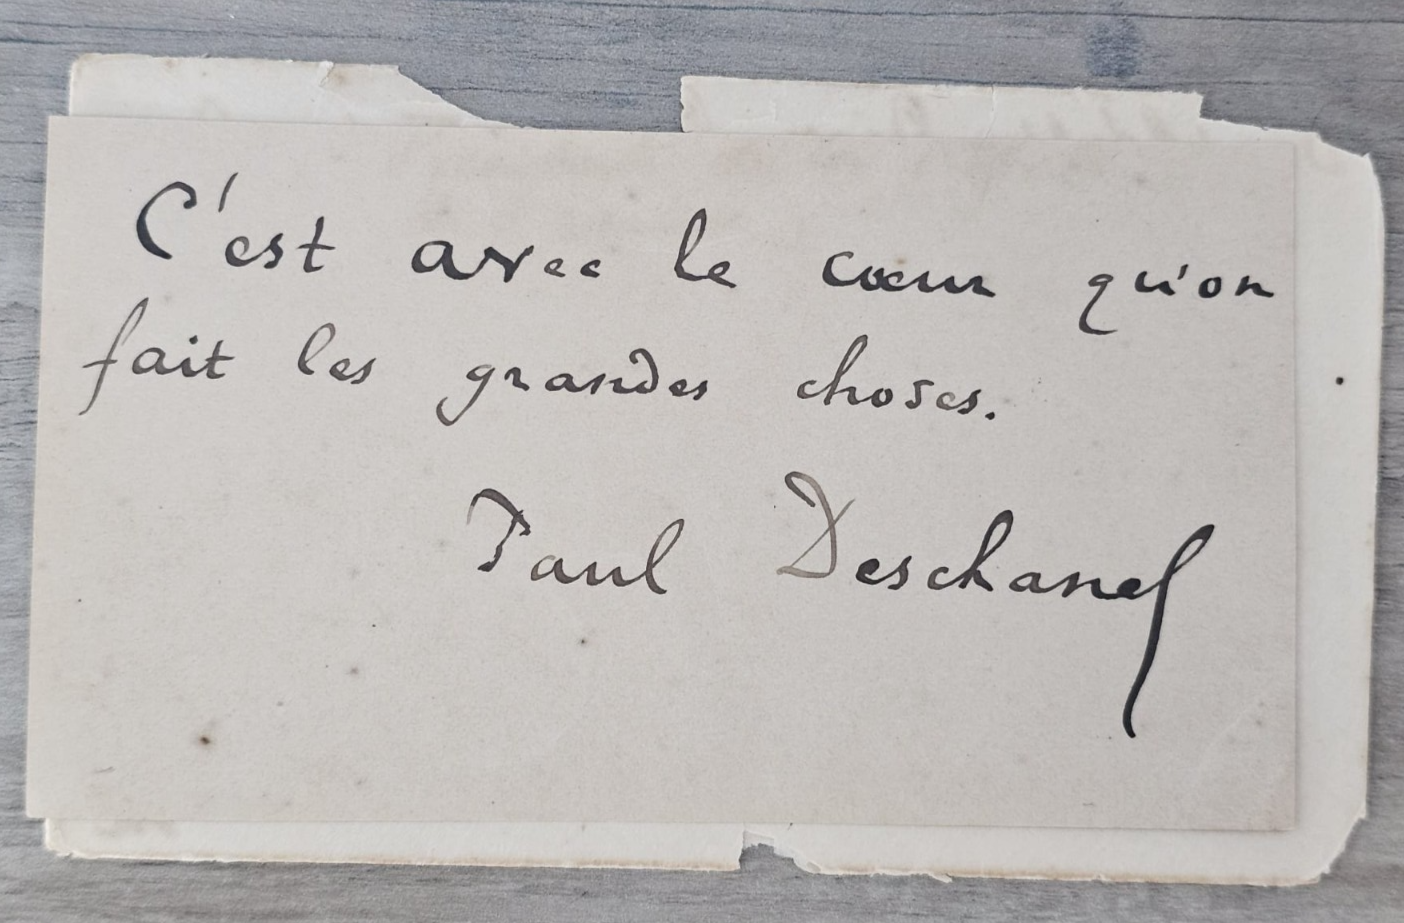 C'est avec le cœur qu'on
fait les grandes choses.
Paul Deschanel